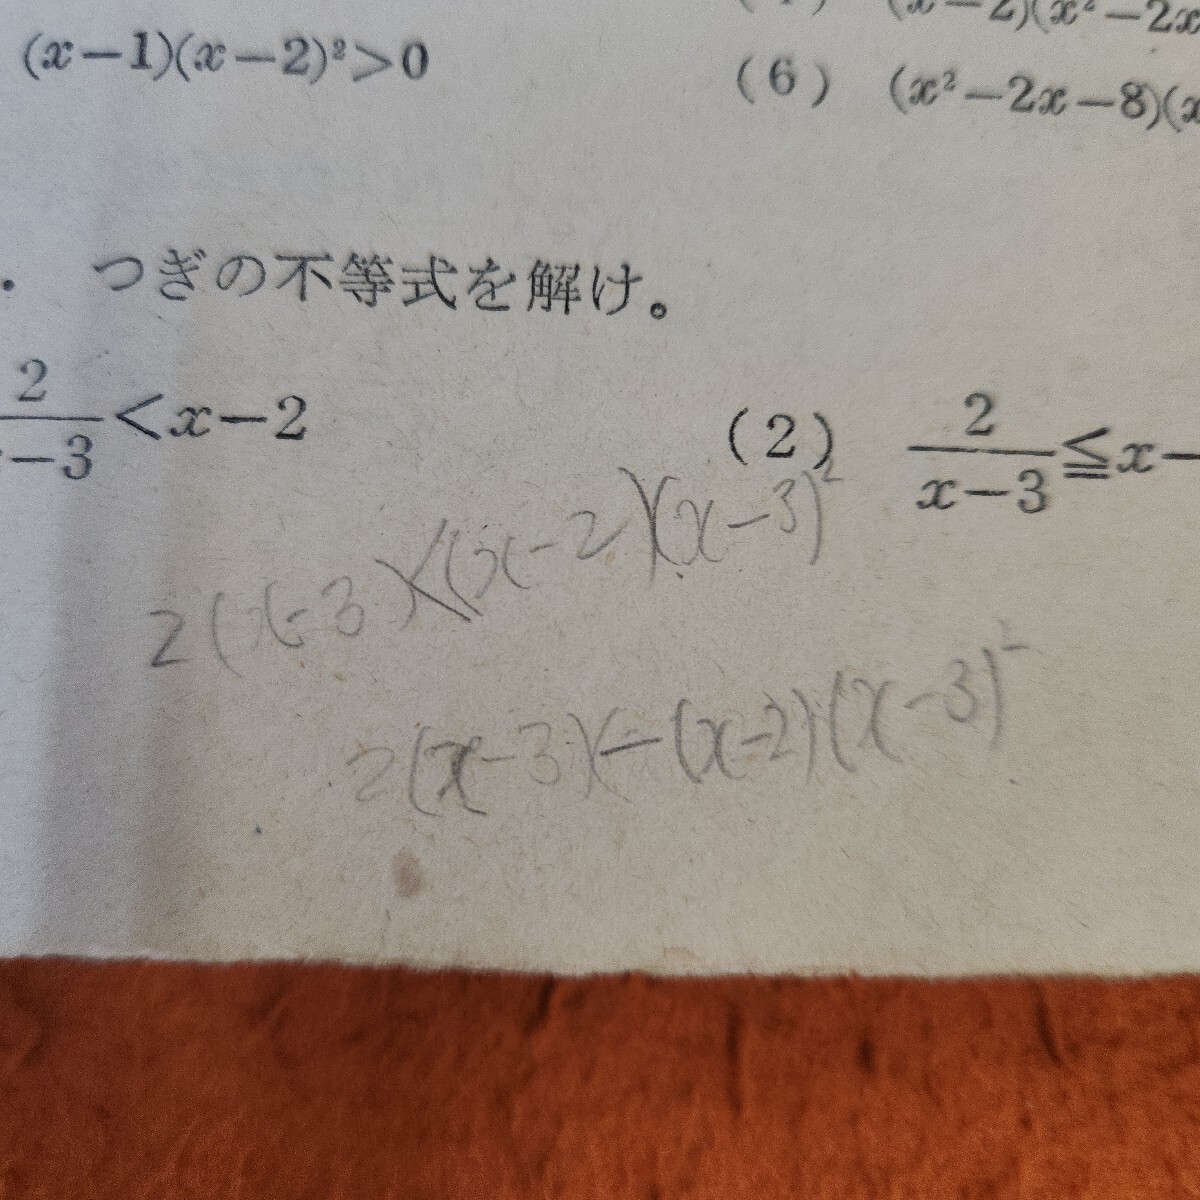 (x−1)(x−2)²>0
(4) (x−2)(x²−2x
(6) (x²−2x−8)(x
. つぎの不等式を解け。
2/x−3 < x−2
(2) 2/x−3 ≦ x−
2(x-3)<(x-2)(x-3)²
2(x-3)<-(x-2)(x-3)²